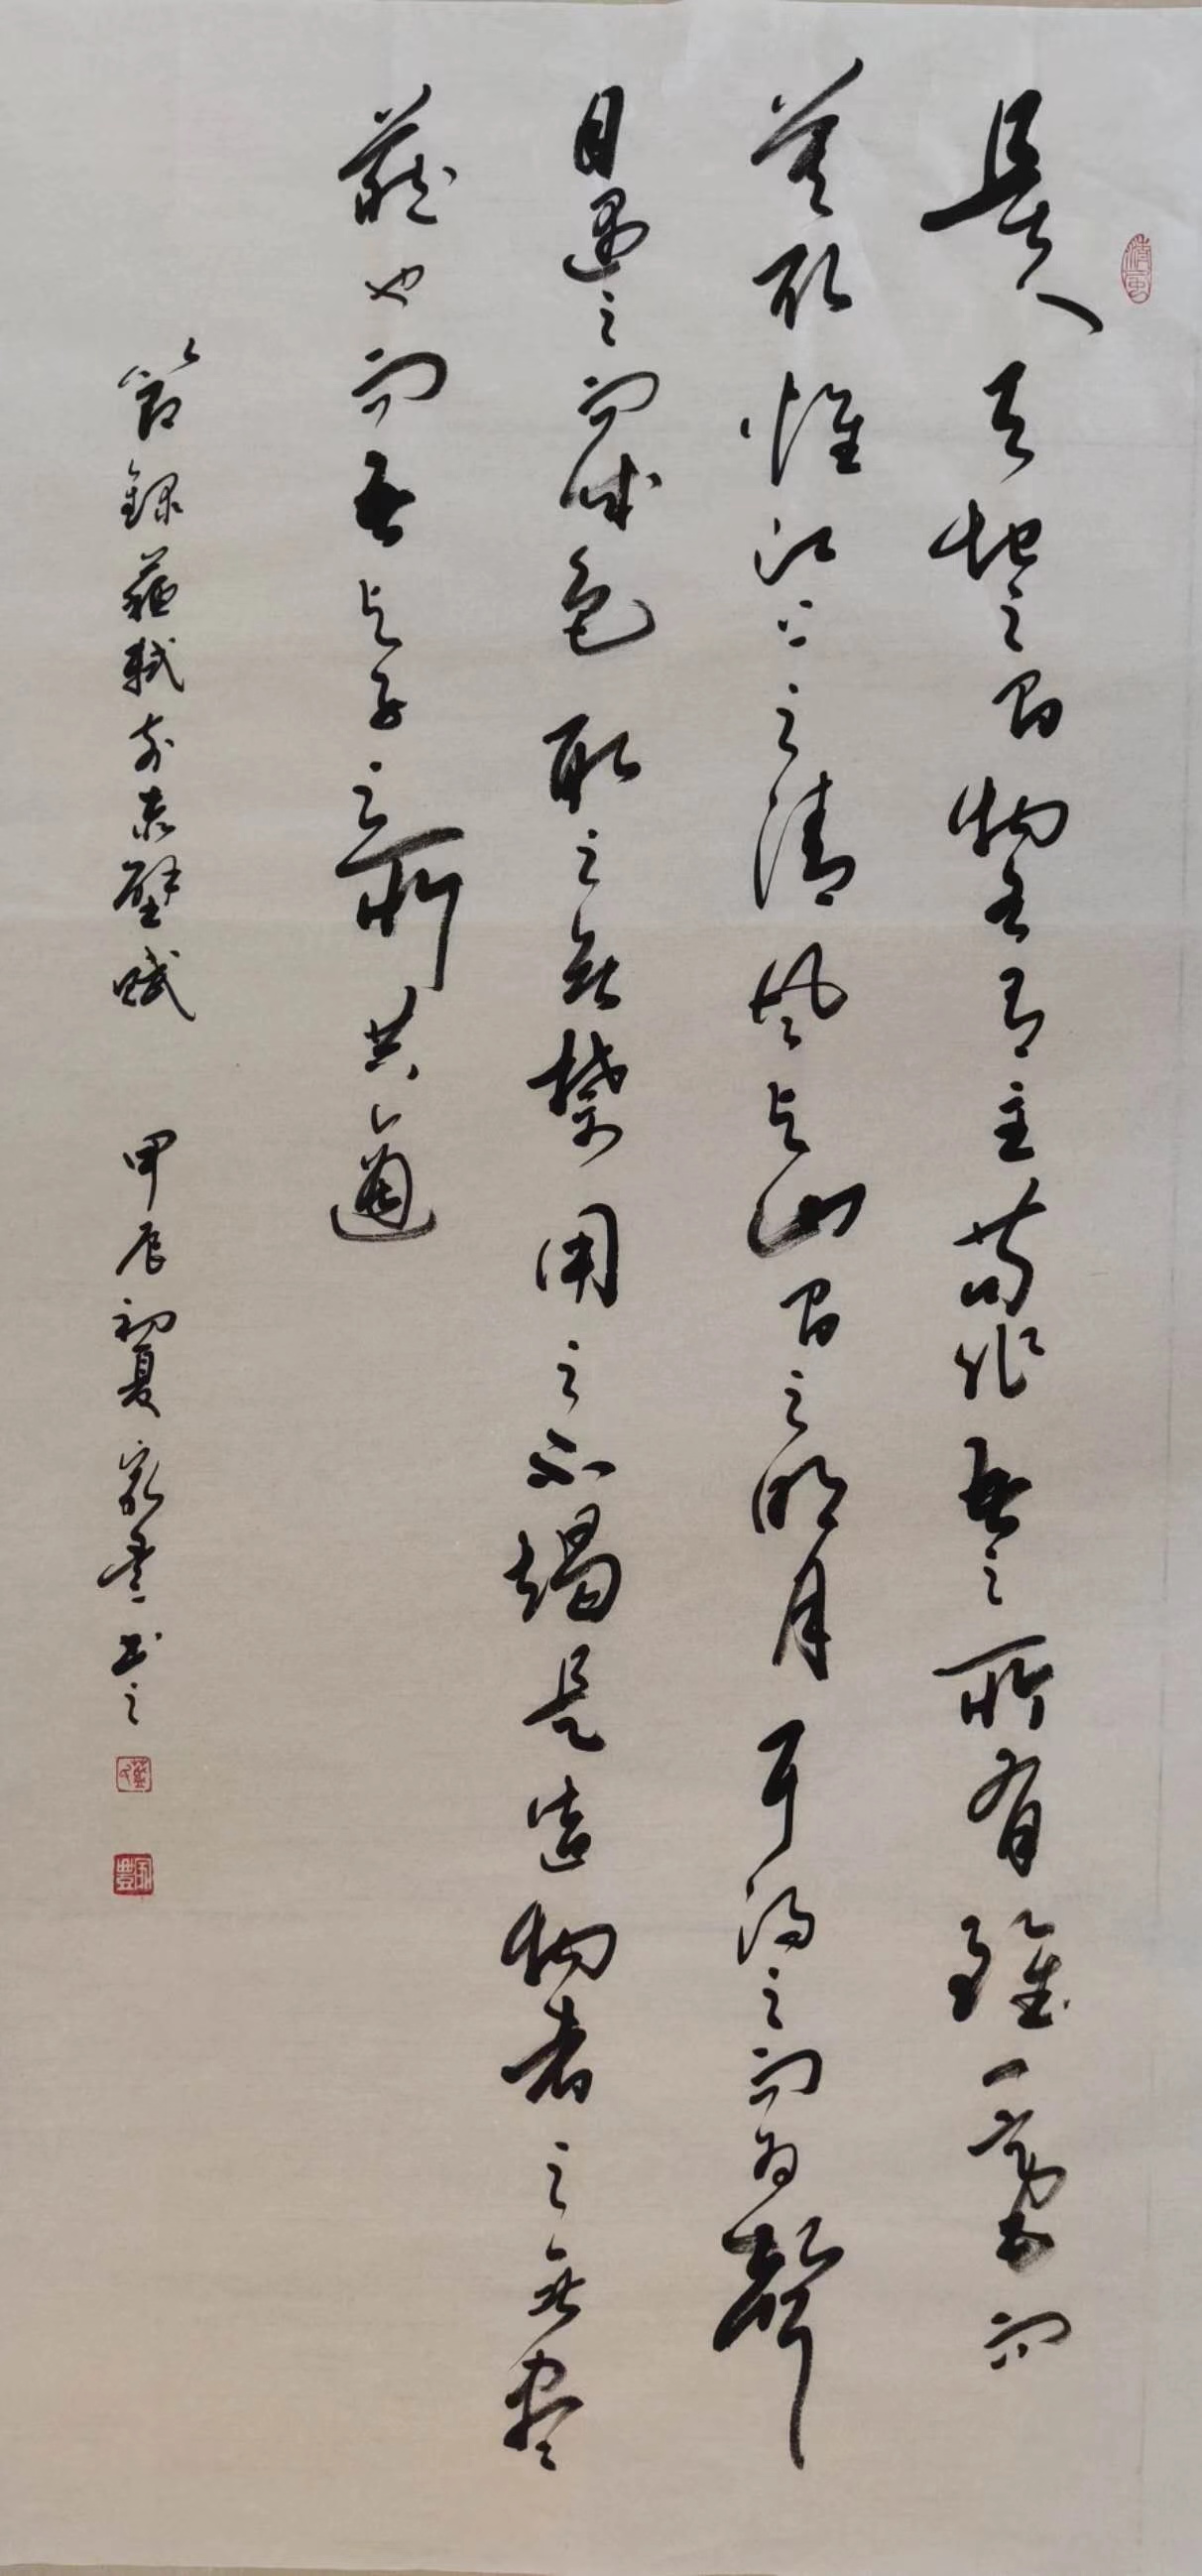 清風
且夫天地之間物各有主苟非吾之所有雖一毫而
莫取惟江上之清風與山間之明月耳得之而為聲
目遇之而成色取之無禁用之不竭是造物者之無盡
藏也而吾與子之所共適
節錄蘇軾前赤壁賦 甲辰初夏 家豐書之
家豐